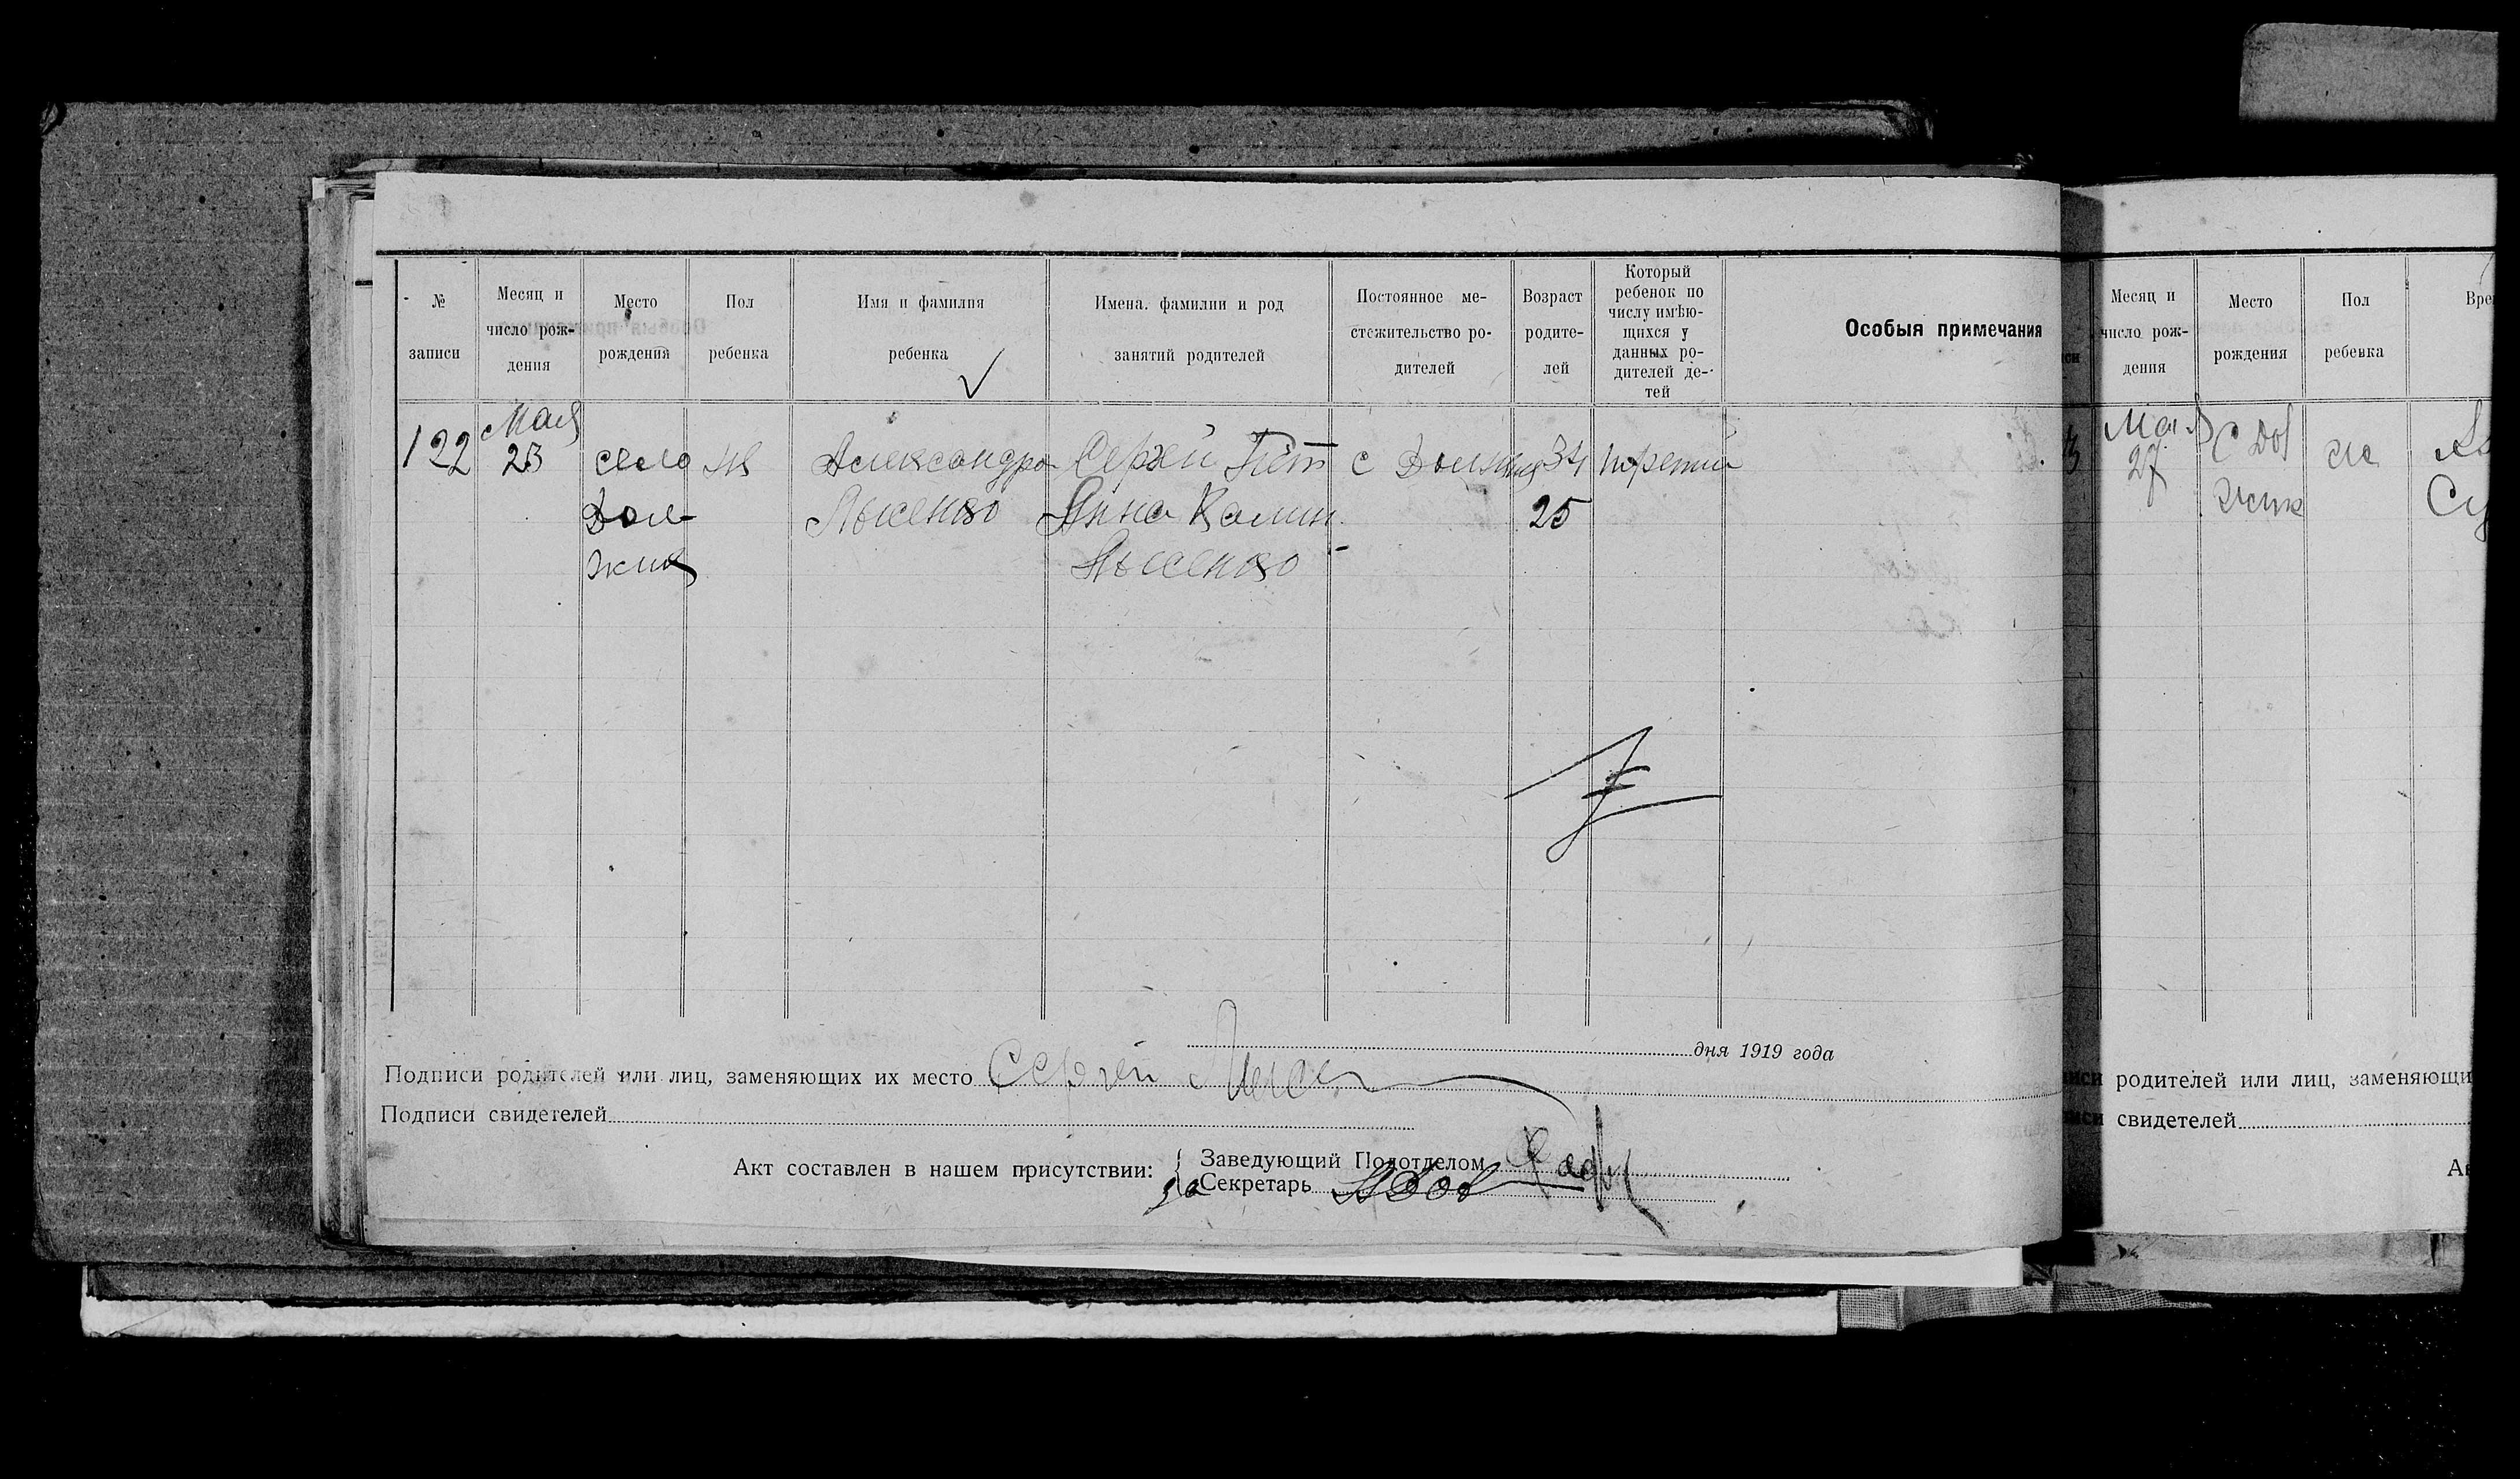 № записи
Месяц и число рождения
Место рождения
Пол ребенка
Имя и фамилия ребенка
Имена. фамилии и род занятий родителей
Постоянное местожительство родителей
Возраст родителей
Который ребенок по числу имѣющихся у данных родителей детей
Особыя примечания
122
Мая
23
село
Дол-
жик
ж
Александра
Лысенко
Сергей Пет
Анна Калин
Лысенко
с Должик
34
25
третий
дня 1919 года
Подписи родителей или лиц, заменяющих их место Сергей
Подписи свидетелей
Акт составлен в нашем присутствии:
Заведующий Подотделом
Секретарь
Месяц и число рождения
Место рождения
Пол ребенка
Мая
27
С Дол
жик
родителей или лиц, заменяющи
свидетелей